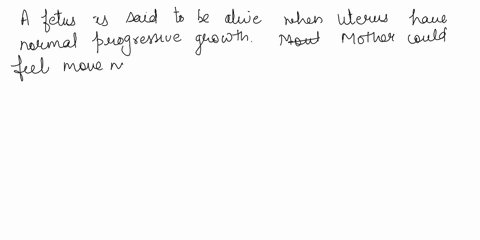 A fetus is said to be alive when uterus have
normal progressive growth. Mother could
feel move n